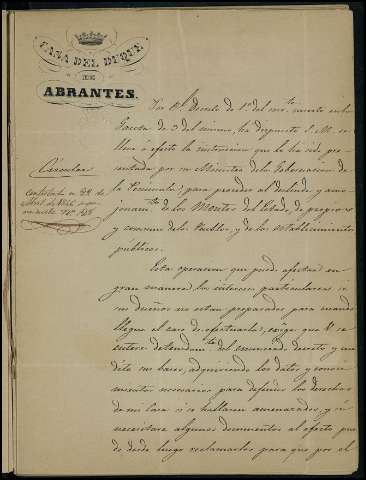 CASA DEL DUQUE
DE
ABRANTES.
Circular
contestada en 22 de
Abril de 1846
Por Rl. Decreto de 1º del corrte. inserto en la
Gaceta de 3 del mismo, ha dispuesto S. M. se
lleve a efecto la instruccion que le ha sido pre-
sentada por su Ministro de la Gobernacion de
la Peninsula, para proceder al deslinde y amo-
jonamto. de los Montes del Estado, de propios
y comunes de los Pueblos, y de los establecimientos
publicos.
Esta operacion que puede afectar en
gran manera los intereses particulares si
sus dueños no estan preparados para cuando
llegue el caso de efectuarla, exige que V. se
entere detenidamte. del enunciado decreto y me-
dite sus bases, adquiriendo los datos y conoci-
mientos necesarios para defender los derechos
de mi Casa si se hallaren amenazados, y si
necesitare algunos documentos al efecto pue-
de desde luego reclamarlos para que por el